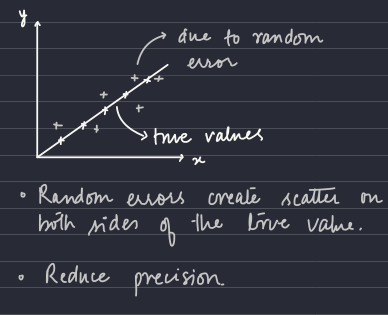 y
due to random
error
true values
x
• Random errors create scatter on
both sides of the true value.
• Reduce precision.